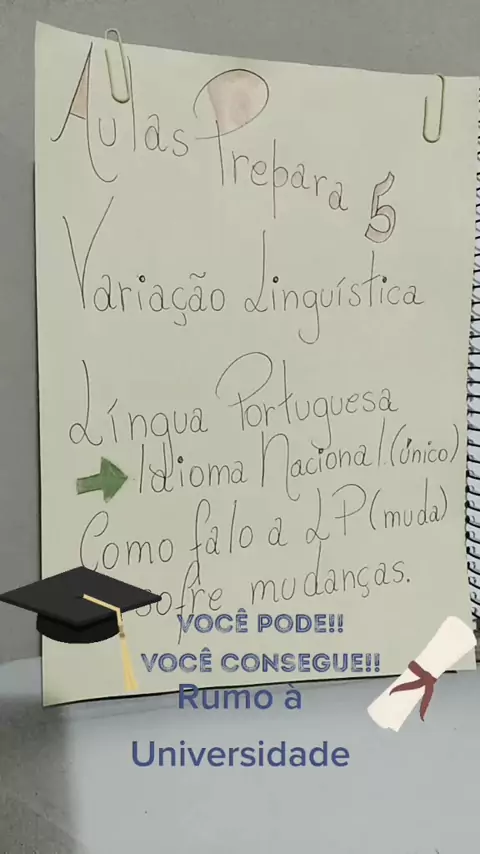 Aulas Prepara 5
Variação Linguística
Língua Portuguesa
Idioma Nacional (único)
Como falo a LP (muda)
sofre mudanças.
VOCÊ PODE!!
VOCÊ CONSEGUE!!
Rumo à
Universidade